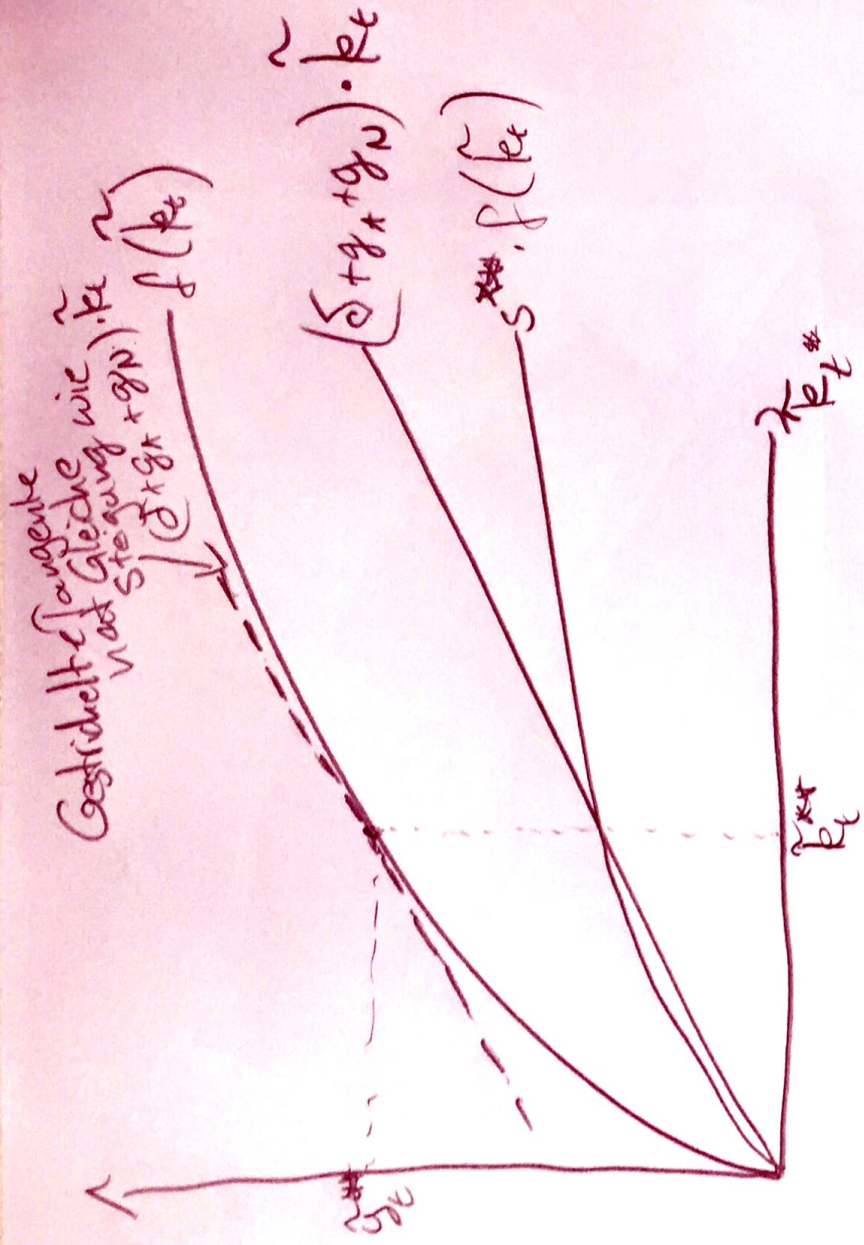 Gestrichelte Tangente
hat Gleiche
Steigung wie
(δ+g_A+g_N)·k̃_t
f(k̃_t)
(δ+g_A+g_N)·k̃_t
s**·f(k̃_t)
ỹ_t**
k̃_t**
k̃_t*